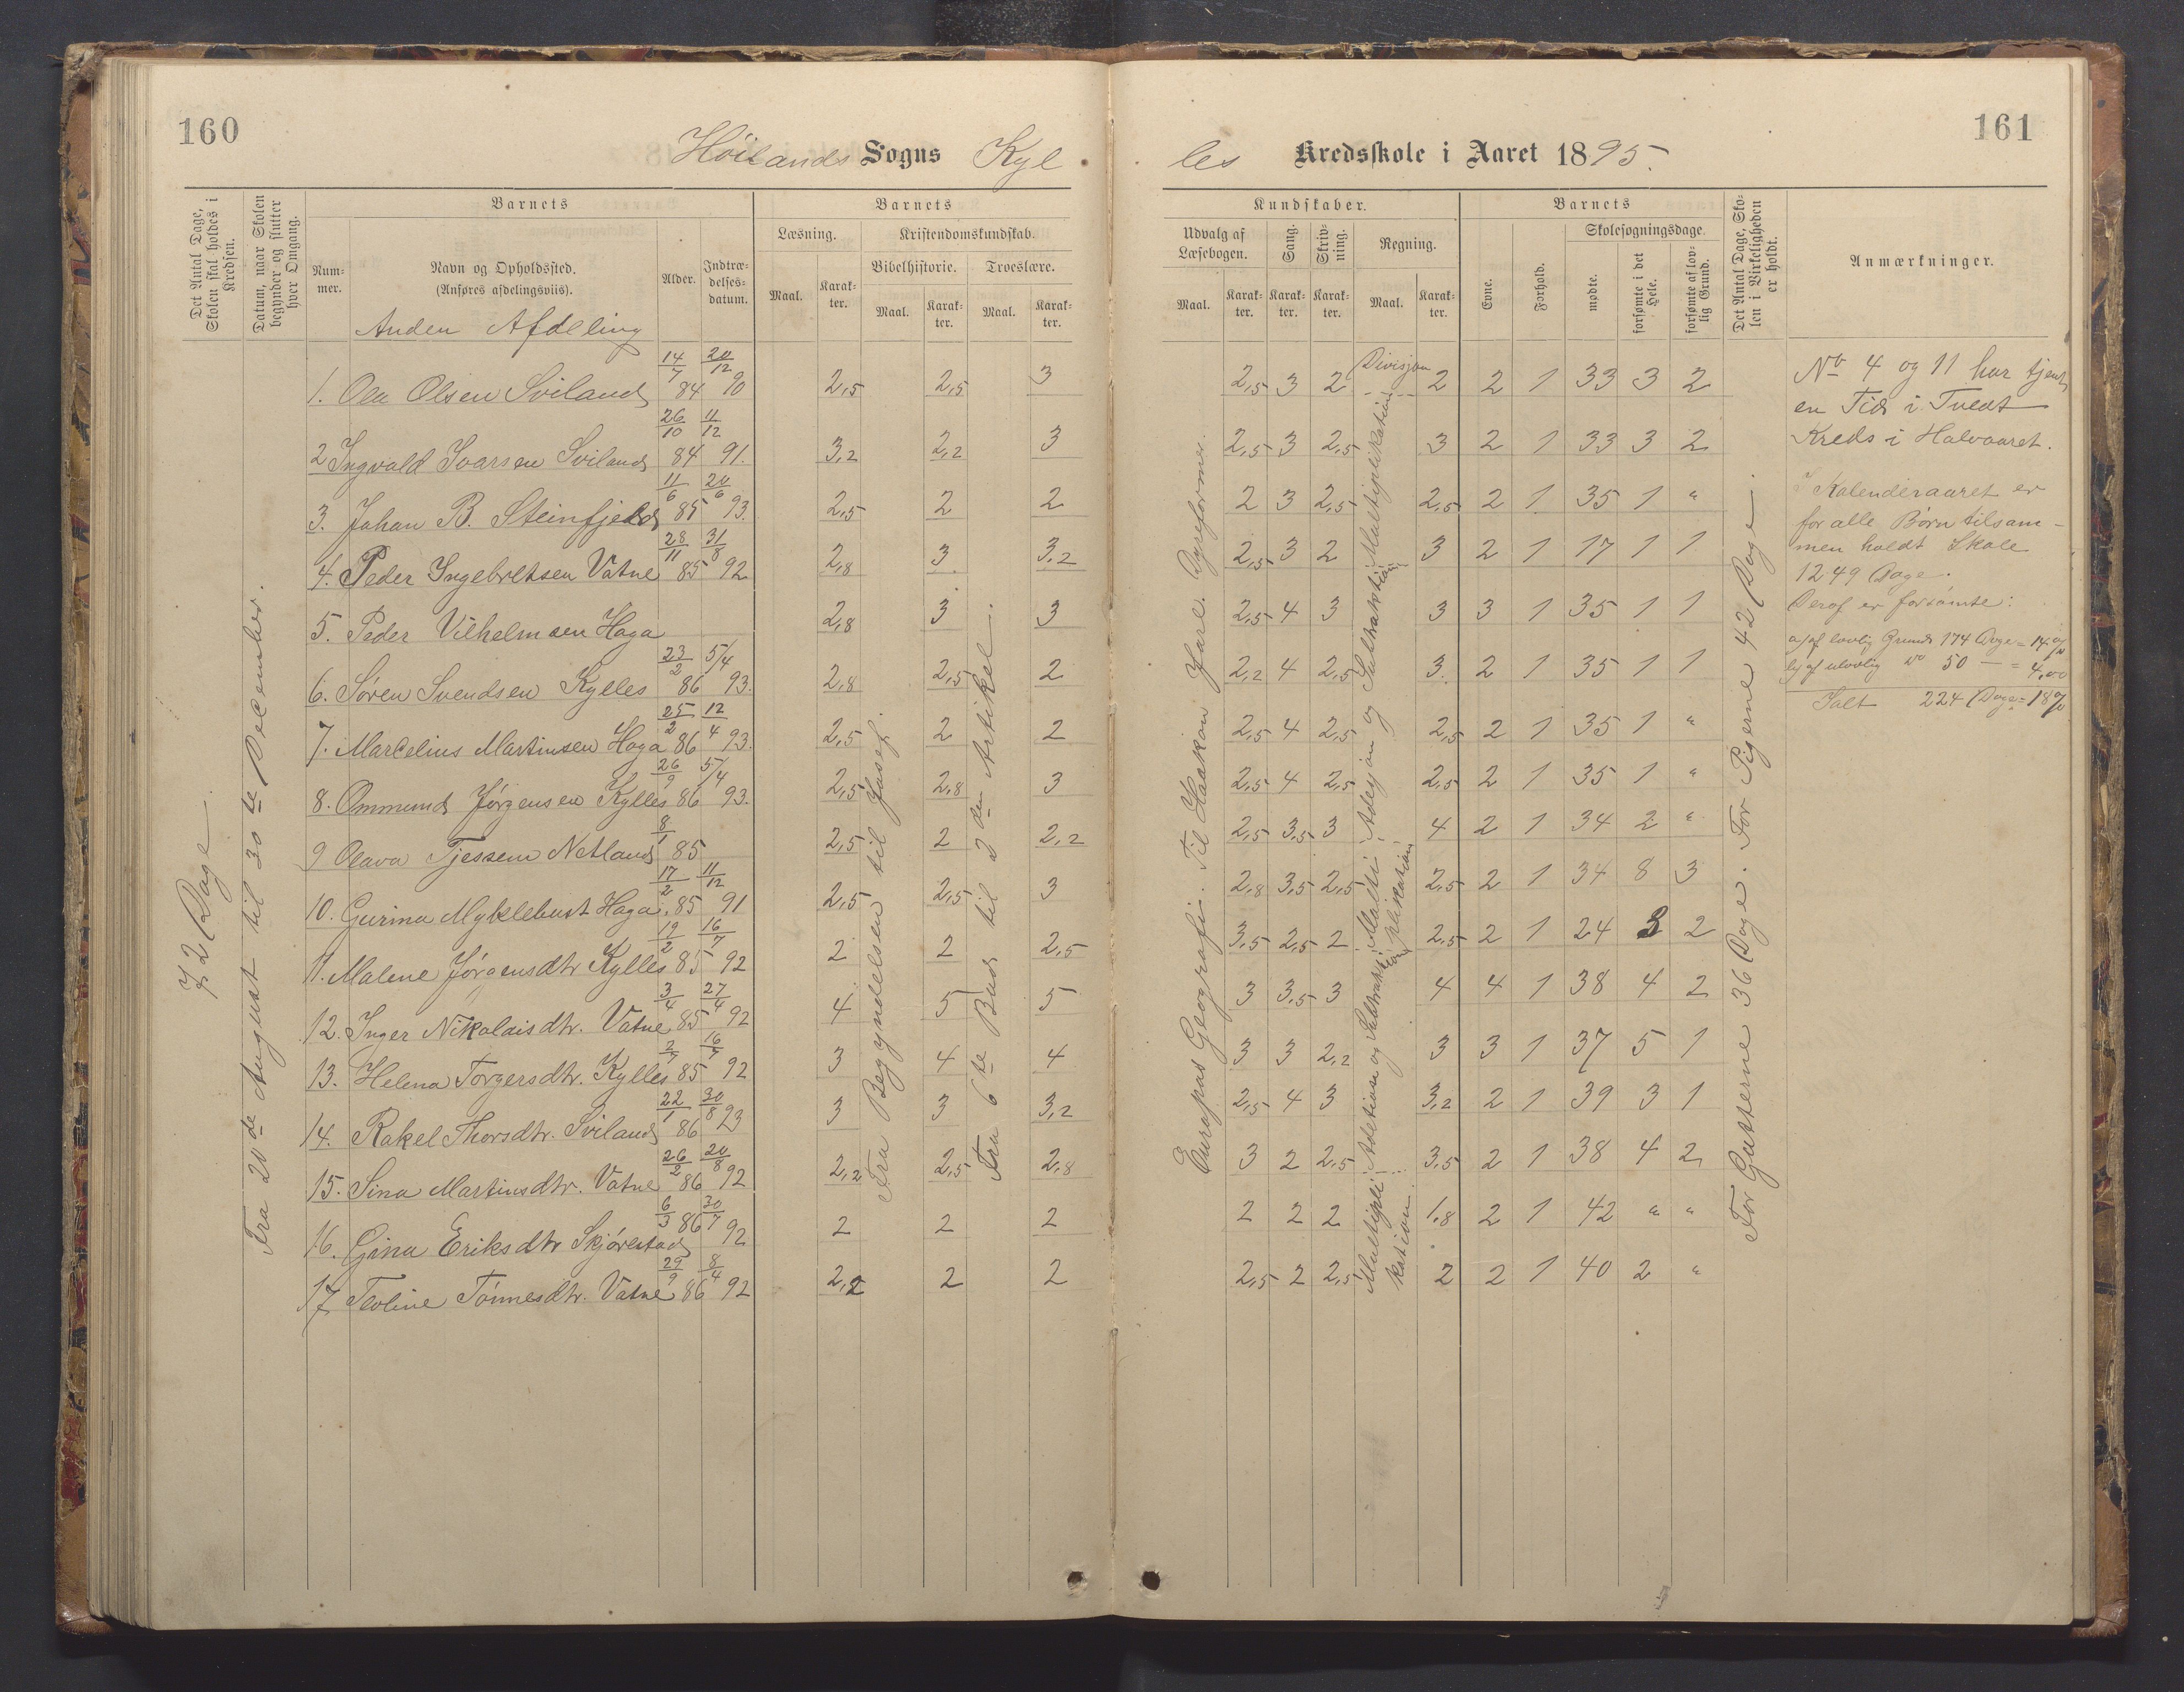 160
Höilands Sogns Kyl
Det Antal Dage, Skolen skal holdes i Kredsen.
Datum, naar Skolen begynder og slutter hver Omgang.
Barnets
Num-mer.
Navn og Opholdssted.
(Anføres afdelingsviis).
Alder.
Indtræ-delses-datum.
Barnets
Læsning.
Kristendomskundskab.
Bibelhistorie.
Troeslære.
Maal. Karak-ter. Maal. Karak-ter. Maal. Karak-ter.
Anden Afdeling
72 Dage
Fra 20de August til 30te December.
1. Ola Olsen Sviland 14/7 84 20/12 90 2,5 2,5 3
2 Ingvald Ivarsen Sviland 26/10 84 11/12 91. 3,2 2,2 3
3. Johan B. Steinfjeld 11/6 85 20/6 93. 2,5 2 2
4. Peder Ingebretsen Vatne 28/11 85 31/8 92 2,8 3 3,2
5. Peder Vilhelmsen Haga 2,8 3 3
6. Søren Svendsen Kylles 23/2 86 5/4 93. 2,8 2,5 2
7. Marcelius Martinsen Haga 25/2 86 12/4 93. 2,5 2 2
8. Ommund Jørgensen Kylles 26/9 86 5/4 93. 2,5 2,8 3
9 Olava Tjessem Netland 8/1 85 2,5 2 2,2
10. Gurina Myklebust Haga 17/2 85 11/12 91 2,5 2,5 3
11. Malene Jørgensdtr Kylles 19/2 85 16/7 92 2 2 2,5
12. Inger Nikolaisdtr. Vatne 3/4 85 27/4 92 4 5 5
13. Helena Torgersdtr. Kylles 2/7 85 16/7 92 3 4 4
14. Rakel Thorsdtr. Sviland 22/1 86 30/8 93 3 3 3,2
15. Sina Martinsdtr. Vatne 26/2 86 20/8 92 2,2 2,5 2,8
16. Gina Eriksdtr Skjørestad 6/3 86 30/7 92 2 2 2
17. Teoline Tönnesdtr. Vatne 29/9 86 8/4 92 2,2 2 2
Fra Begyndelsen til Josef.
Fra 6te Bud til 2den Artikel.
161
les Kredsskole i Aaret 1895.
Kundskaber.
Udvalg af Læsebogen.
Sang.
Skriv-ning.
Regning.
Maal. Karak-ter. Karak-ter. Karak-ter. Maal. Karak-ter.
Barnets
Evne.
Forhold.
Skolesøgningsdage.
mødte.
forsømte i det Hele.
forsømte af lov-lig Grund.
Det Antal Dage, Sko-len i Virkeligheden er holdt.
Anmærkninger.
Europas Geografi. Til Haakon Jarl. Dyreformer.
Divisjon
Multiplikation
Adisjon og Subtraktion
Multiplikation
Adetion og Subtraktion
Multiplikation.
2,5 3 2 2 2 1 33 3 2
2,5 3 2,5 3 2 1 33 3 2
2 3 2,5 2,5 2 1 35 1 "
2,5 3 2 3 2 1 17 1 1
2,5 4 3 3 3 1 35 1 1
2,2 4 2,5 3. 2 1 35 1 1
2,5 4 2,5 2,5 2 1 35 1 "
2,5 4 2,5 2,5 2 1 35 1 "
2,5 3,5 3 4 2 1 34 2 "
2,8 3,5 2,5 2,5 2 1 34 8 3
3,5 2,5 2 2,5 2 1 24 3 2
3 3,5 3 4 4 1 38 4 2
3 3 2,2 3 3 1 37 5 1
2,5 4 3 3,2 2 1 39 3 1
3 2 2,5 3,5 2 1 38 4 2
2 2 2 1,8 2 1 42 " "
2,5 2 2,5 2 2 1 40 2 "
For Gutterne 36 Dage. For Pigerne 42 Dage.
No 4 og 11 har tjent
en Tid i Tvedt
Kreds i Halvaaret.
I Kalenderaaret er
for alle Børn tilsam-
men holdt Skole
1249 Dage.
Deraf er forsömte:
a) af lovlig Grund 174 Dage = 14%
b) af ulovlig do 50 — = 4,00
Ialt 224 Dage = 18%